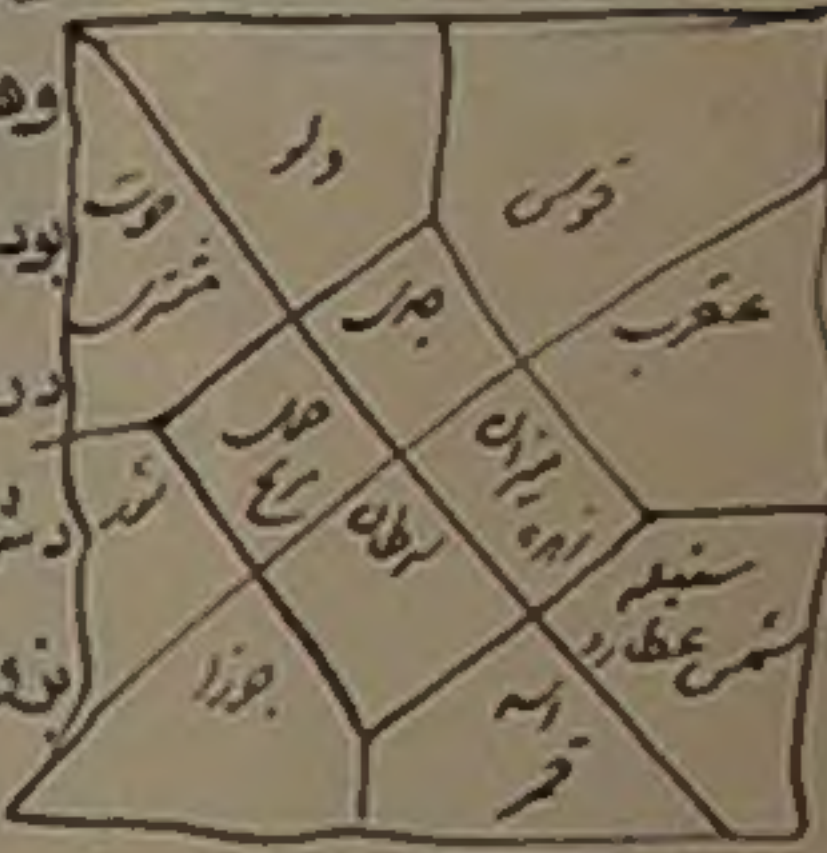 دلو
قوس
حوت
مشتری
جدی
عقرب
حمل
میزان
زهره
سرطان
ثور
سنبله
شمس عطارد
جوزا
اسد
قمر